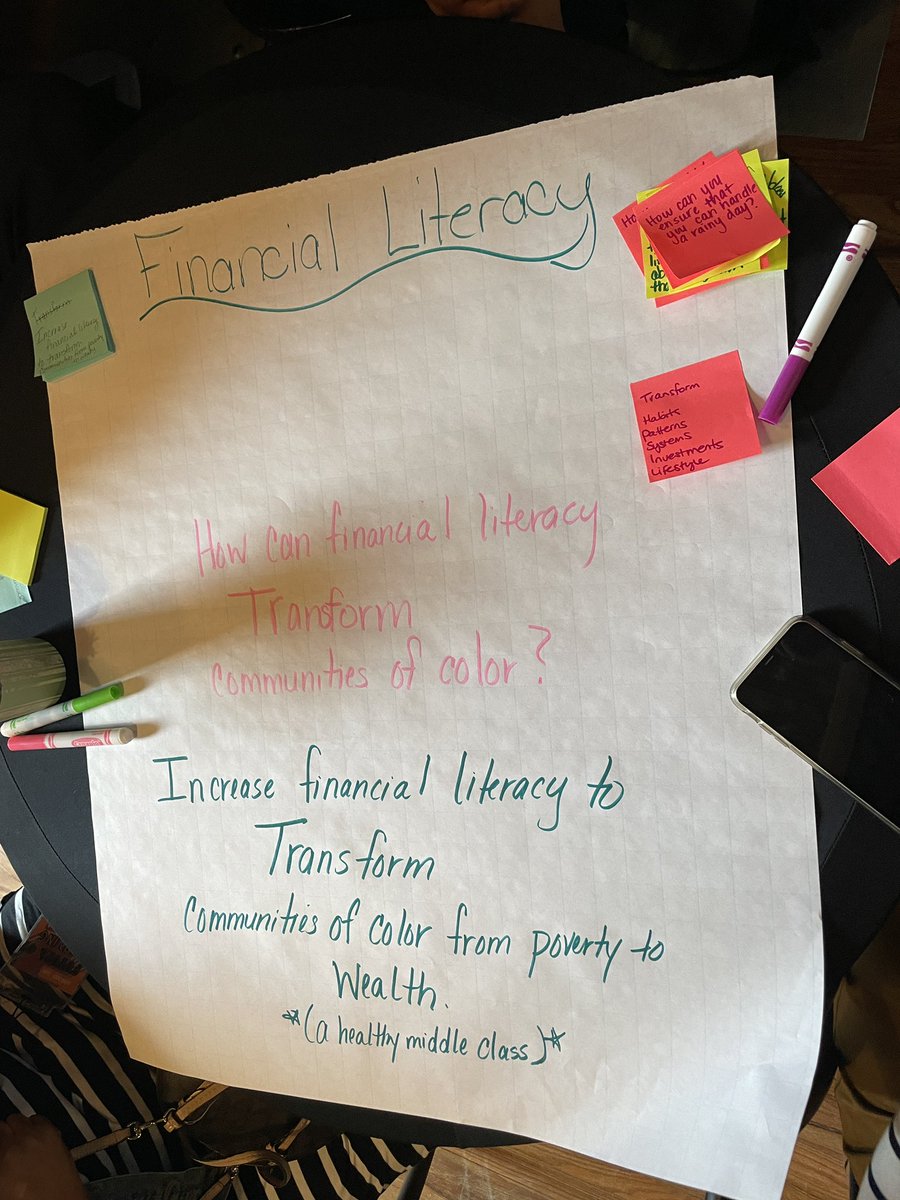 Financial Literacy
Transform
Increase
financial literacy
to transform
communities from poverty
How can you
ensure that
you can handle
a rainy day?
Transform
Habits
patterns
Systems
Investments
Lifestyle
How can financial literacy
Transform
Communities of color?
Increase financial literacy to
Transform
Communities of color from poverty to
Wealth.
*(a healthy middle class)*